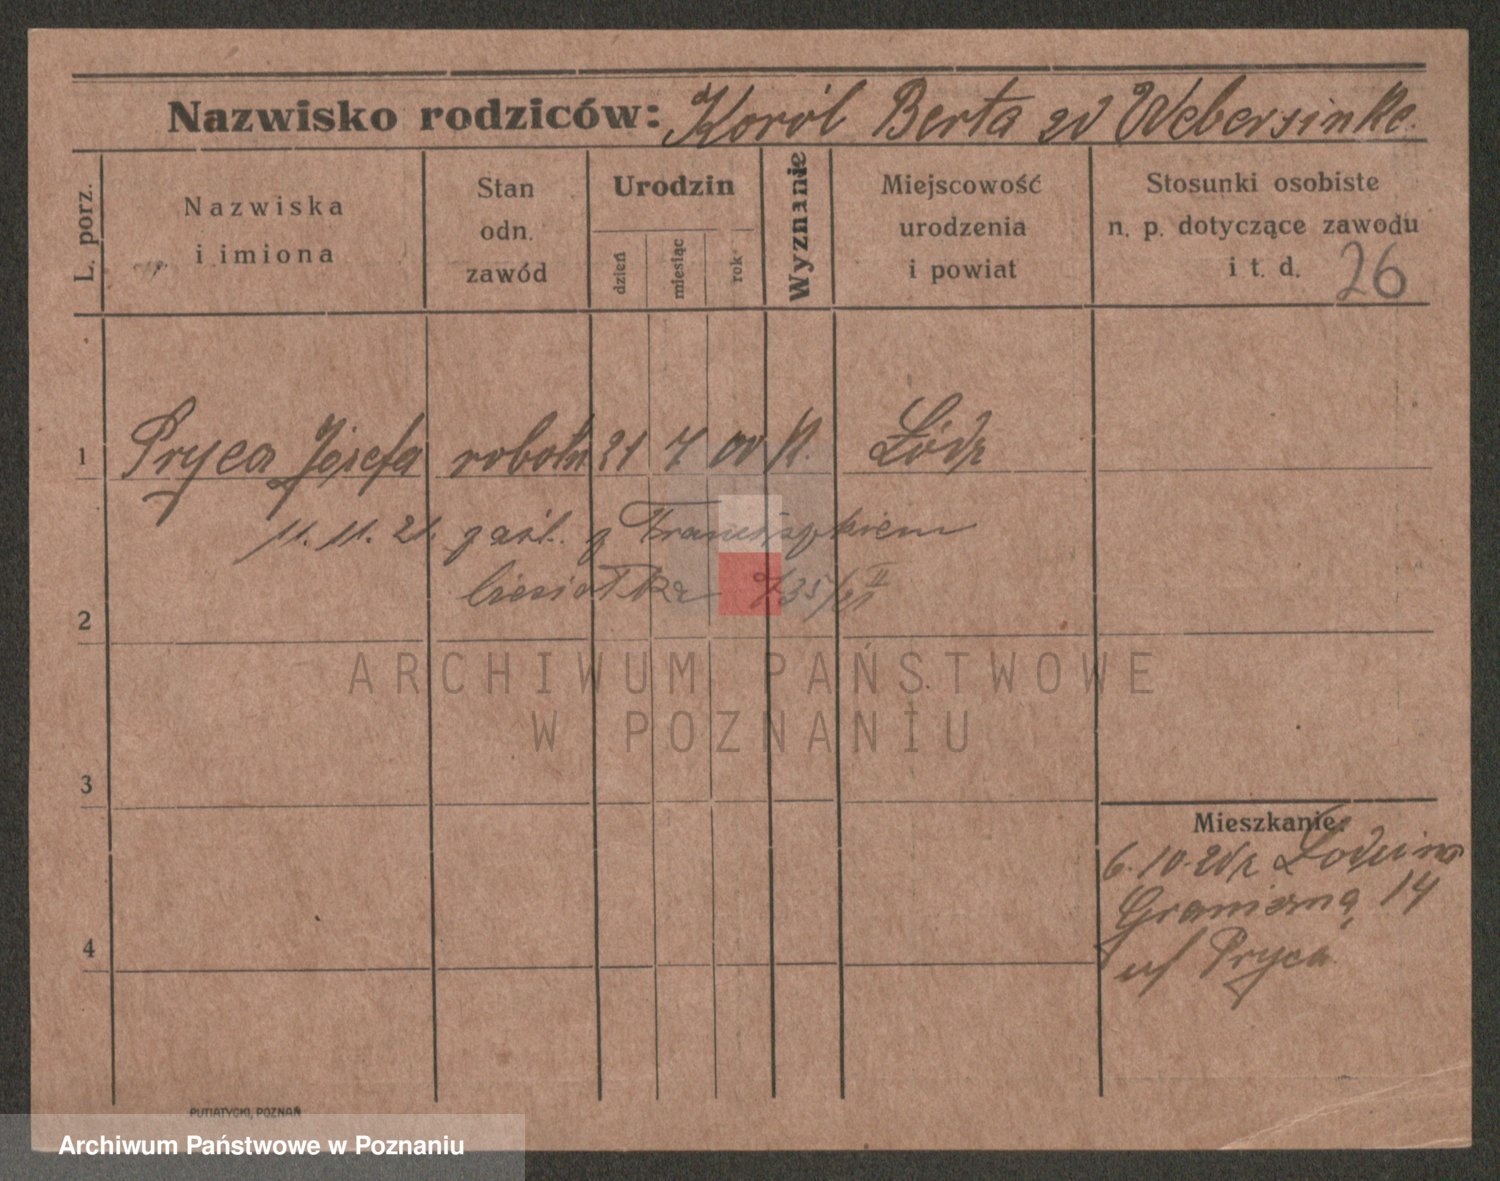 Nazwisko rodziców: Koról Berta zd Webersinke.
L. porz.
Nazwiska
i imiona
Stan
odn.
zawód
Urodzin
dzień
miesiąc
rok
Wyznanie
Miejscowość
urodzenia
i powiat
Stosunki osobiste
n. p. dotyczące zawodu
i t. d. 26
1 Pryca Józefa robotn 21 7 00 kt. Łódź
11. 11. 21. zaśl. z Franciszkiem
2
ARCHIWUM PAŃSTWOWE
W POZNANIU
3
Mieszkanie:
6. 10. z Łodzi na
Graniczną 14
4
u/ Pryca
PUTIATYCKI, POZNAŃ
Archiwum Państwowe w Poznaniu